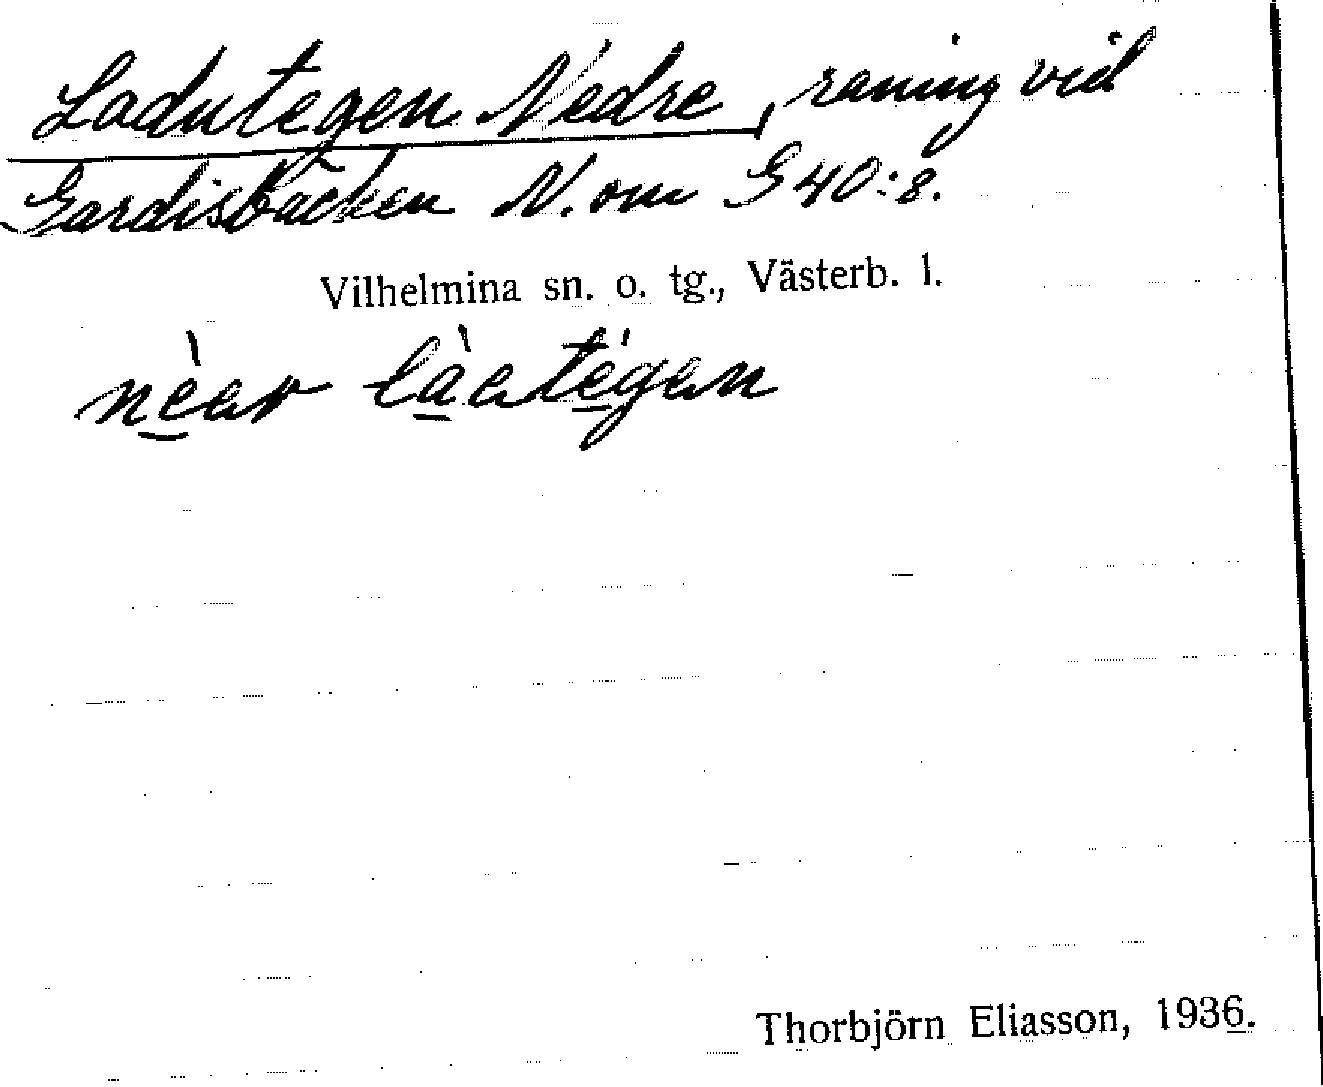 Ladutegen Nedre, raning vid
Gardisbäcken N. om G 40:8.
Vilhelmina sn. o. tg., Västerb. l.
Thorbjörn Eliasson, 1936.